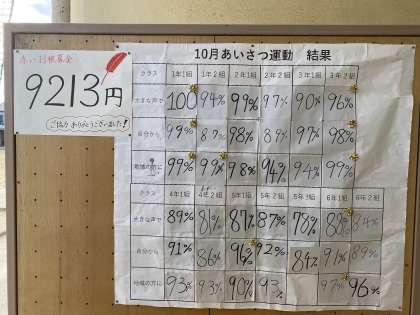 赤い羽根募金
9213円
ご協力 ありがとうございました!
10月あいさつ運動 結果
クラス 1年1組 1年2組 2年1組 2年2組 3年1組 3年2組
大きな声で 100 94% 99% 97% 90% 96%
自分から 99% 87% 98% 89% 97% 98%
地域の方に 99% 99% 98% 94% 94% 99%
クラス 4年1組 4年2組 5年1組 5年2組 5年3組 6年1組 6年2組
大きな声で 89% 81% 87% 87% 78% 88% 84%
自分から 91% 86% 96% 92% 84% 91% 89%
地域の方に 93% 93% 90% 97% 96%